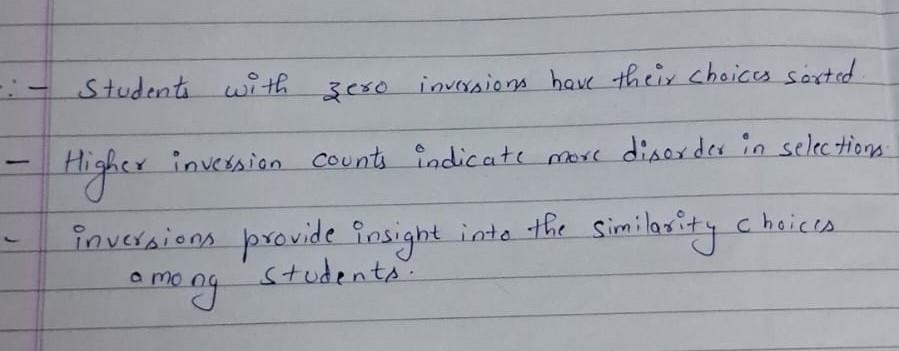 :- Students with zero inversions have their choices sorted.
- Higher inversion counts indicate more disorder in selections.
- inversions provide insight into the similarity choices
among students.